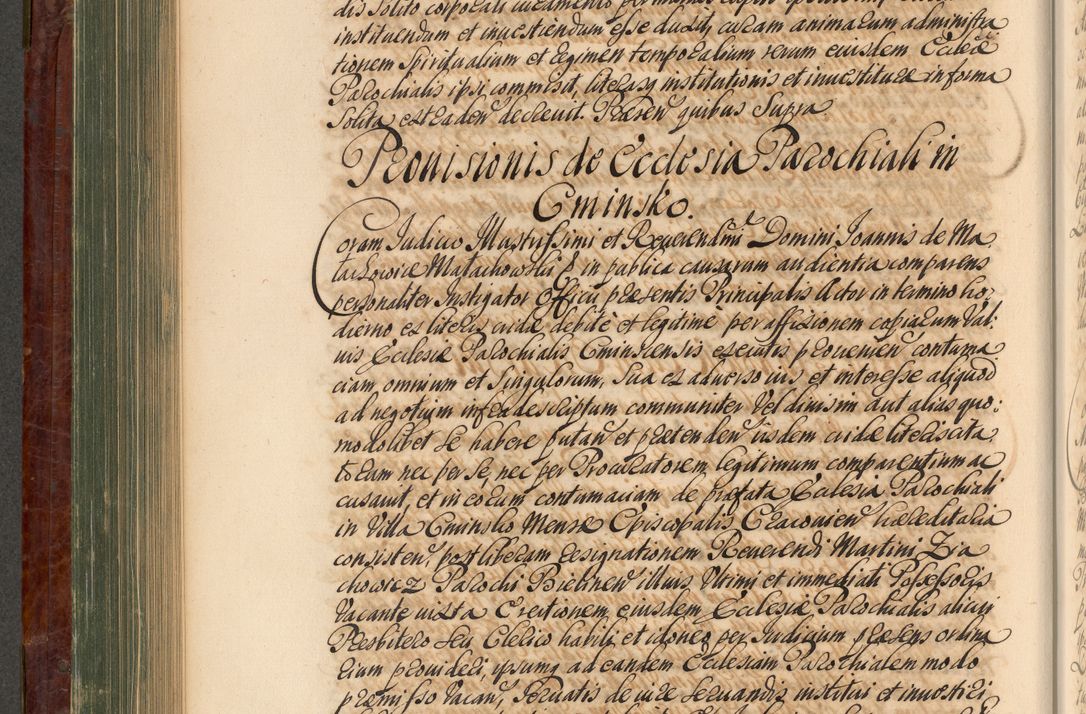 instituendum et inuestiendum esse duxit, curam animarum administra
tionem Spiritualium et regimen temporalium rerum eiusdem Eccleæ
Parochialis ipsi commisit, literasq institutionis et inuestituræ in forma
Solita extraden decreuit. Præsen quibus Supra
Prouisionis de Ecclesia Parochiali in
Cminsko.
Coram Judicio Illustrissimi et Reuerendmi Domini Joannis de Ma
łachowice Małachowski in publica causarum audientia comparens
personaliter Instigator Officii præsentis Principalis Actor in termino ho
dierno ex literis cridæ debitè et legitimè per affixionem copiarum Val
uis Ecclesiæ Parochialis Cminscensis executis prouenien contuma
ciam omnium et Singulorum, Sua ex aduerso ius et interesse aliquod
ad negotium infra descriptum communiter Vel diuisim aut alias quo:
modolibet se habere putan et prætenden iisdem cridæ literis cita
torum nec per se, nec per Procuratorem legitimum comparentium ac
cusauit, et in eorum contumaciam de præfata Ecclesia Parochiali
in Villa Cminsko Mensæ Episcopalis Cracouien hæreditaria
consisten, post liberam resignationem Reuerendi Martini Zia
chowicz Parochi Biebnen illius Vltimi et immediati Possessoris
Vacante iuxta Erectionem eiusdem Ecclesiæ Parochialis alicui
Presbitero Seu Clerico habili et idoneo per Judicium præsens ordina
rium prouideri, ipsumq ad eandem Ecclesiam Parochialem modo
præmisso Vacan, Seruatis de iure seruandis institui et inuestiri